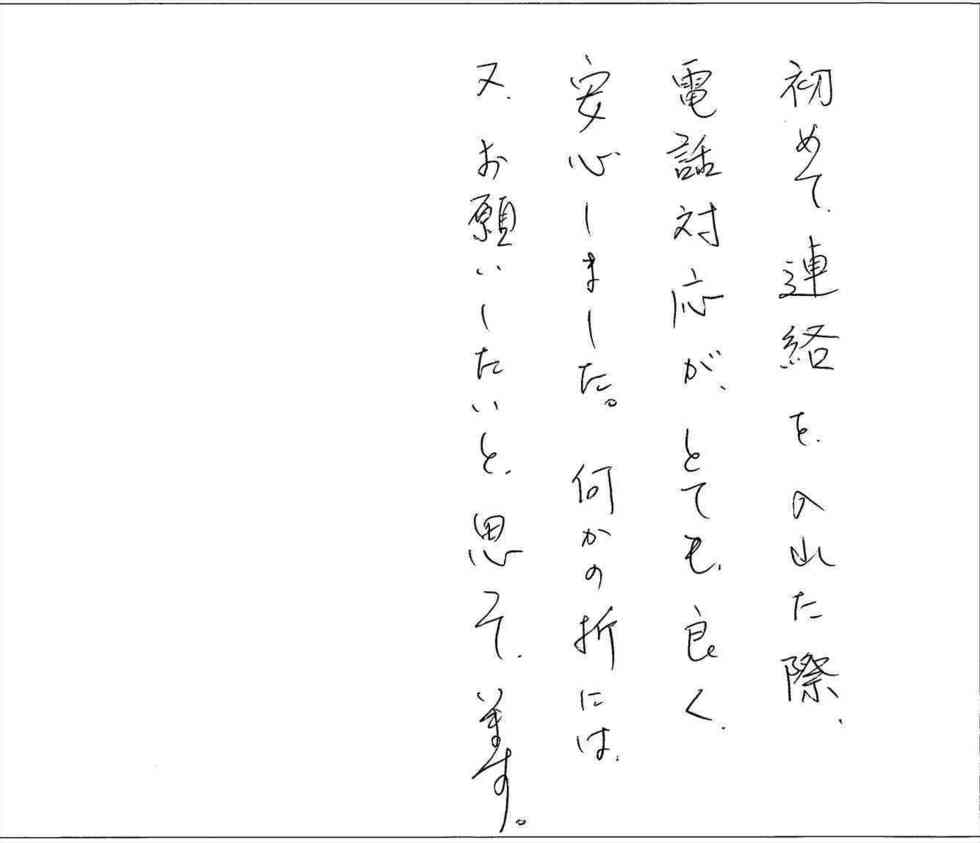 初めて、連絡を、入れた際、
電話対応が、とても、良く、
安心しました。何かの折には、
又、お願いしたいと、思って、います。